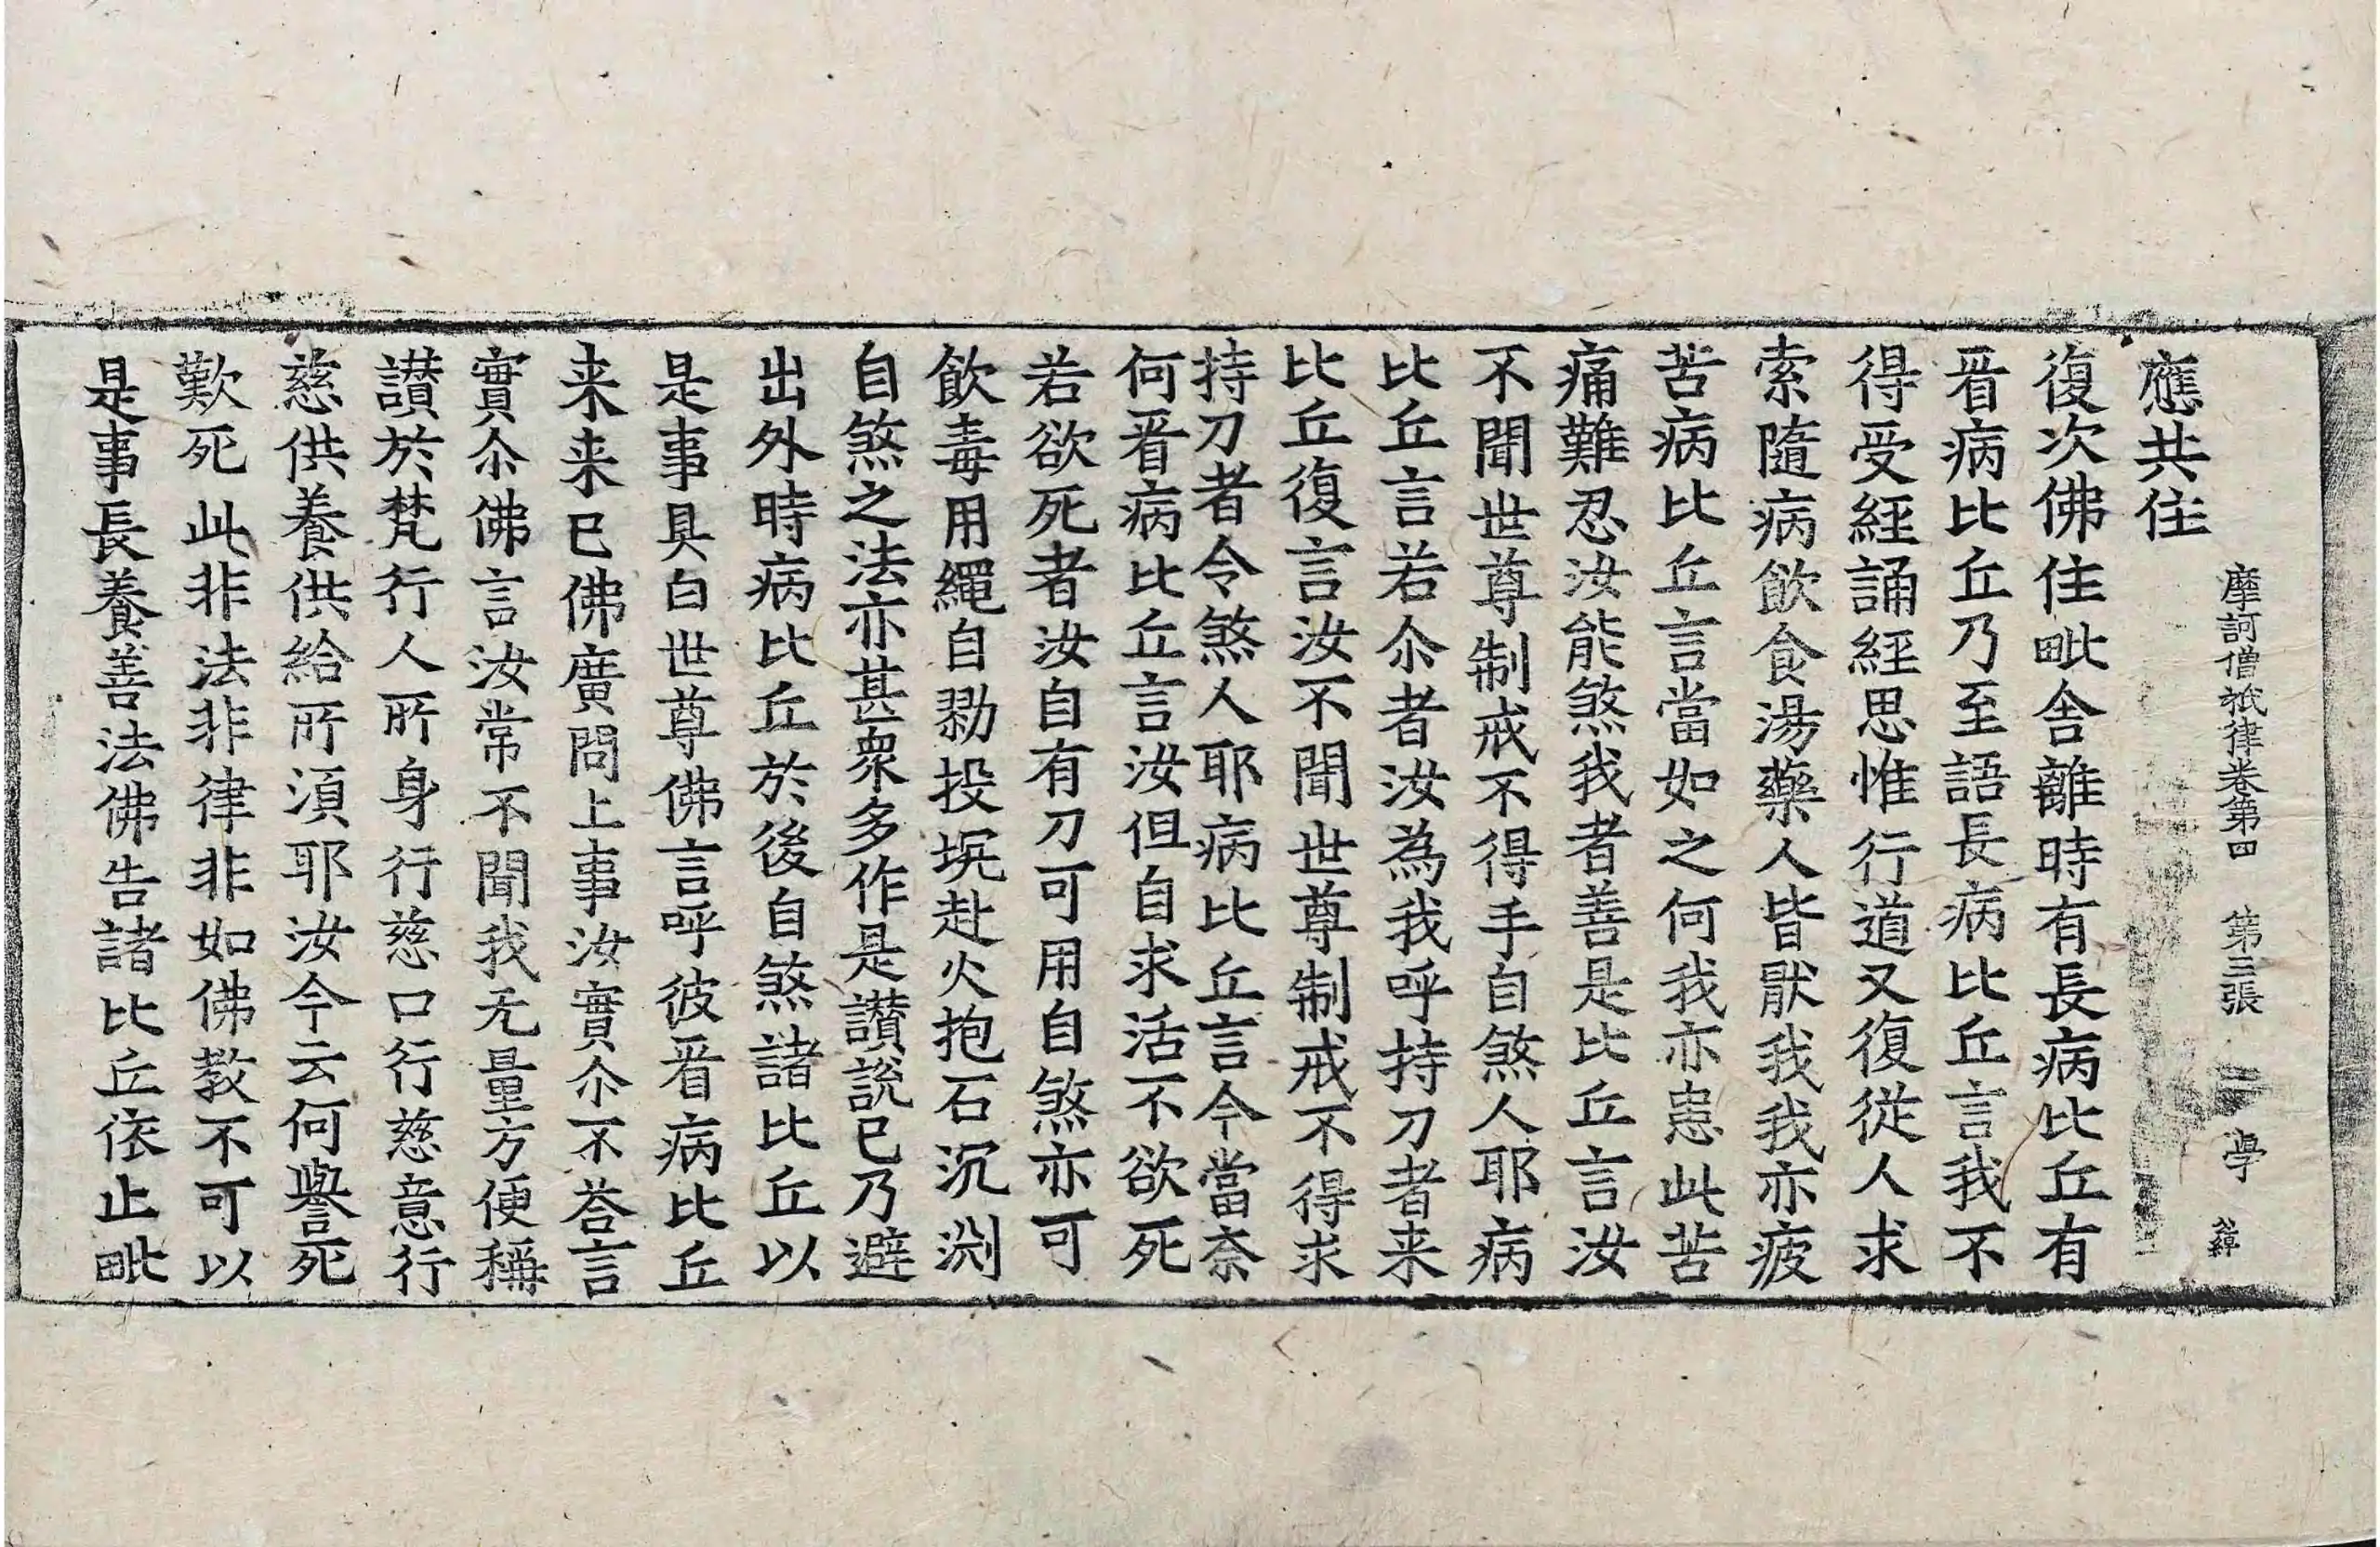 應共住
摩訶僧祇律卷第四 第三張 學
復次佛住毗舍離時有長病比丘有
㸔病比丘乃至語長病比丘言我不
得受經誦經思惟行道又復從人求
索隨病飲食湯藥人皆猒我我亦疲
苦病比丘言當如之何我亦患此苦
痛難忍汝能煞我者善是比丘言汝
不聞世尊制戒不得手自煞人耶病
比丘言若尒者汝為我呼持刀者来
比丘復言汝不聞世尊制戒不得求
持刀者令煞人耶病比丘言今當奈
何㸔病比丘言汝但自求活不欲死
若欲死者汝自有刀可用自煞亦可
飲毒用繩自勒投坑赴火抱石沉渕
自煞之法亦甚衆多作是讃說已乃避
出外時病比丘於後自煞諸比丘以
是事具白世尊佛言呼彼㸔病比丘
来来已佛廣問上事汝實尒不荅言
實尒佛言汝常不聞我无量方便稱
讃於梵行人所身行慈口行慈意行
慈供養供給所湏耶汝今云何譽死
歎死此非法非律非如佛教不可以
是事長養善法佛告諸比丘依止毗